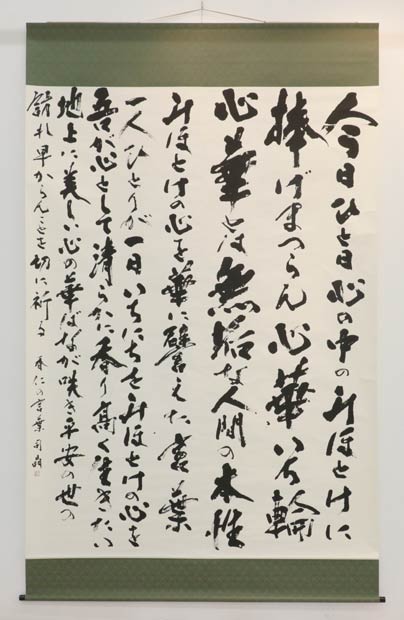 今日ひと日心の中のみほとけに
捧げまつらん心華いち輪
心華とは無垢な人間の本性
みほとけの心を華に譬えた言葉
一人ひとりが一日いちにちをみほとけの心を
吾が心として清らかに香り高く生きたい
地上に美しい心の華ばなが咲き平安の世の
訪れ早からんことを切に祈る
香仁の言葉